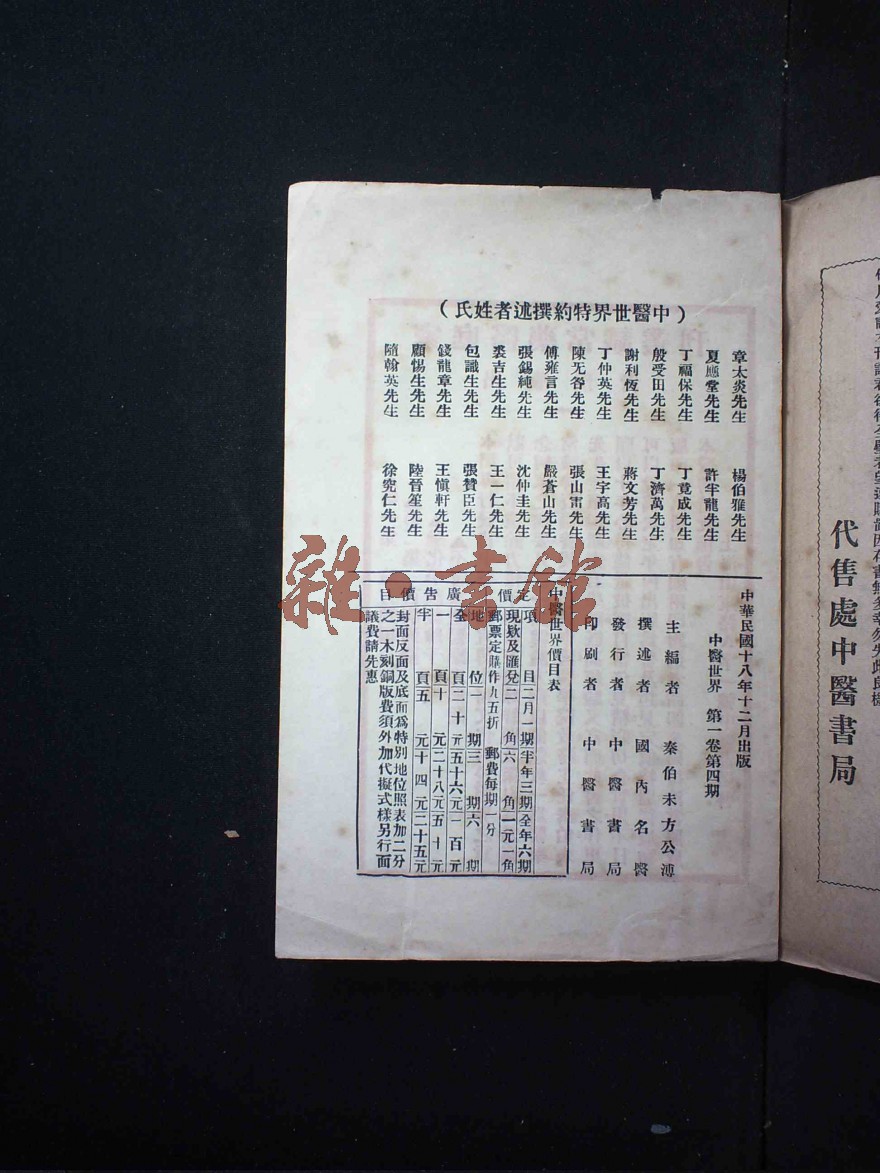 （中醫世界特約撰述者姓氏）
章太炎先生
夏應堂先生
丁福保先生
殷受田先生
謝利恆先生
丁仲英先生
陳无咎先生
傅雍言先生
張錫純先生
裘吉生先生
包識生先生
錢龍章先生
顧惕生先生
隨翰英先生
楊伯雅先生
許半龍先生
丁竟成先生
丁濟萬先生
蔣文芳先生
王宇高先生
張山雷先生
嚴蒼山先生
沈仲圭先生
王一仁先生
張贊臣先生
王愼軒先生
陸晉笙先生
徐究仁先生
中華民國十八年十二月出版
中醫世界 第一卷第四期
主編者 秦伯未方公溥
撰述者 國內名醫
發行者 中醫書局
印刷者 中醫書局
中醫世界價目表
定價
項目 二月一期 半年三期 全年六期
現欵及匯兌 二角 六角 一元一角
郵票定購作九五折 郵費每期一分
廣告價目
地位 二期 三期 六期
全頁 二十元 五十六元 一百元
一頁 十元 二十八元 五十元
半頁 五元 十四元 二十五元
封面反面及底面爲特別地位照表加二分
之一木刻銅版費須外加代擬式樣另行面
議費請先惠
代售處中醫書局
雜·書館